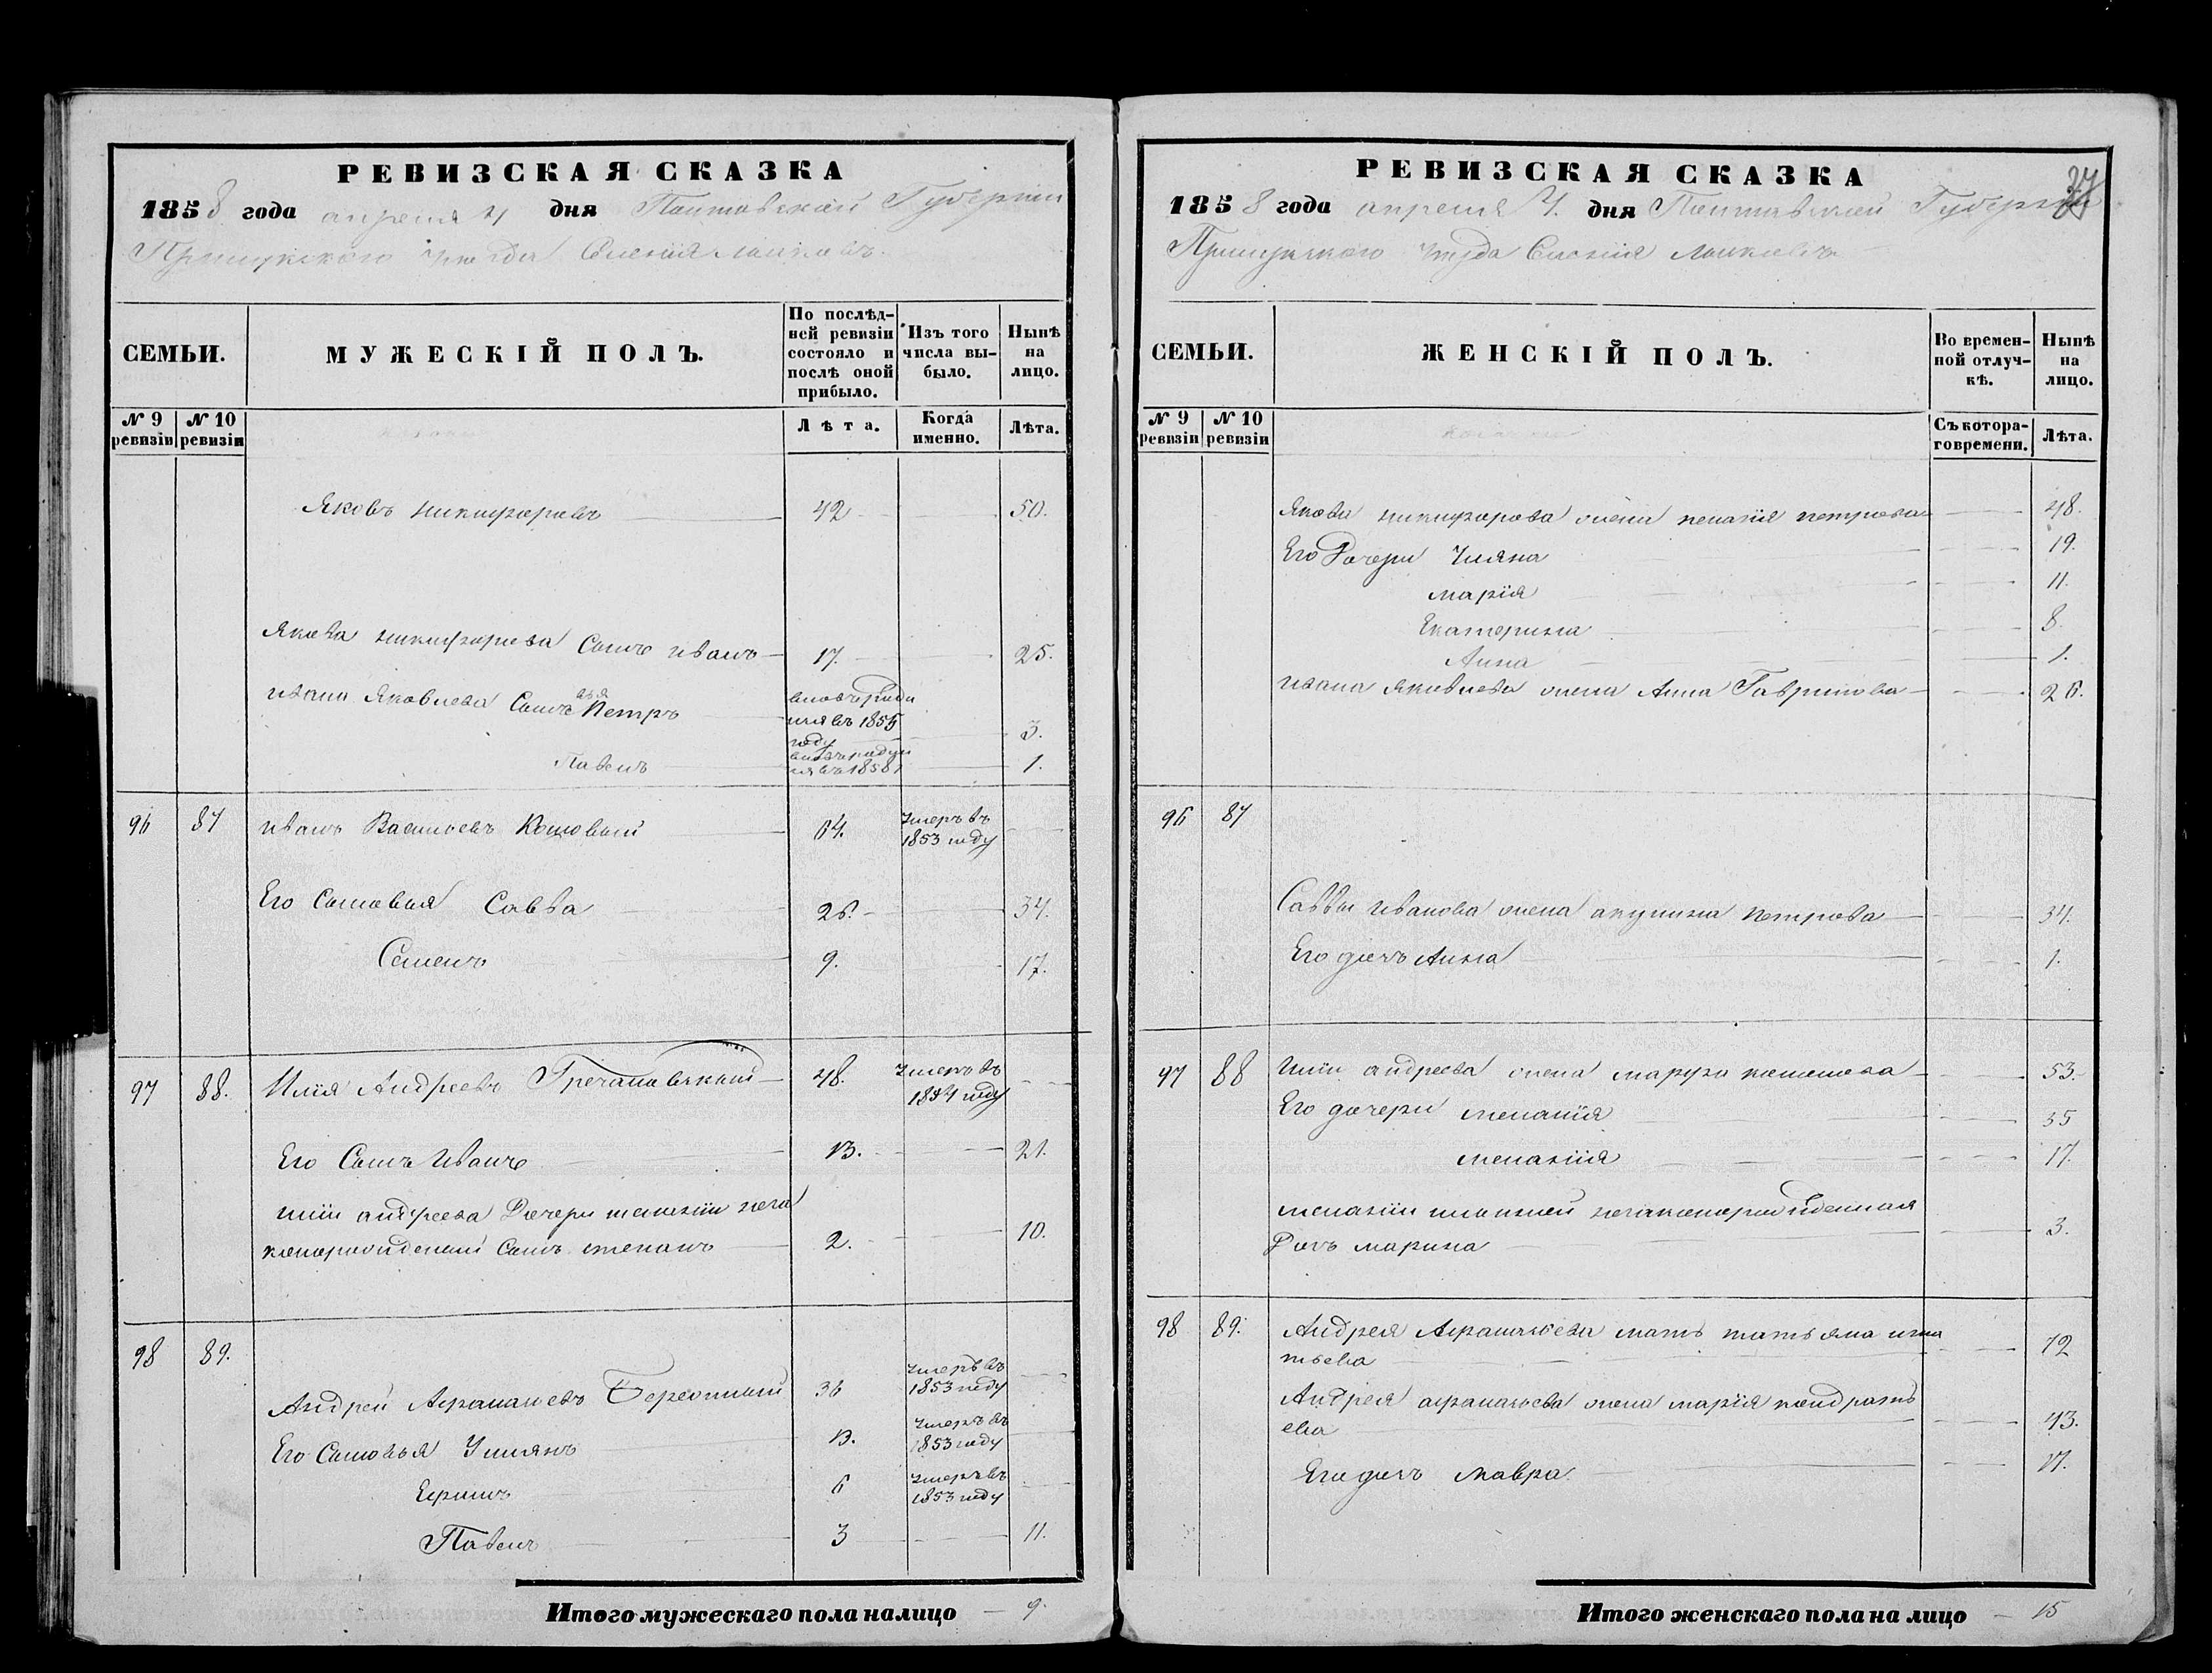 РЕВИЗСКАЯ СКАЗКА
1858 года апреля 4 дня Полтавской Губернии
Прилукского уезда Селенія
СЕМЬИ.
МУЖЕСКІЙ ПОЛЪ.
По послѣд-
ней ревизіи
состояло и
послѣ оной
прибыло.
Изъ того
числа вы-
было.
Нынѣ
на
лицо.
№ 9
ревизіи
№ 10
ревизіи
Лѣта.
Когда
именно.
Лѣта.
Яковъ никифоровъ 42 50.
Якова никифорова Сынъ иванъ 17. 25.
ивана Яковлева Сыновья Петръ вновь родил
ся въ 1855
году 3.
Павелъ вновь родил
ся въ 1858 1.
96 87 иванъ Васильевъ Кошовый 64. Умеръ въ
1853 году
Его Сыновья Савва 26. 34.
Семенъ 9. 17.
97 88. Илія Андреевъ Гречановский 48. Умеръ въ
1854 году
Его Сынъ Иванъ 13. 21.
иліи андреева Дочери меланіи неза
конорожденый Сынъ степанъ 2. 10.
98 89.
Андрей Афанасьевъ 36 Умеръ въ
1853 году
Его Сыновья Уліянъ 13. Умеръ въ
1853 году
Ефимъ 6 Умеръ въ
1853 году
Павелъ 3 11.
Итого мужескаго пола налицо 9.
РЕВИЗСКАЯ СКАЗКА
1858 года апреля 4. дня Полтавской Губернии
Прилукского уезда Селенія
СЕМЬИ.
ЖЕНСКІЙ ПОЛЪ.
Во времен-
ной отлуч-
кѣ.
Нынѣ
на
лицо.
№ 9
ревизіи
№ 10
ревизіи
Съ котора-
го времени.
Лѣта.
Якова никифорова жена пелагія петрова 48.
Его Дочери Уляна 19.
марія 11.
Екатерина 8.
Анна 1.
ивана яковлева жена Анна Гаврилова 26.
96 87
Саввы иванова жена акулина петрова 34.
Его дочь Анна 1.
97 88 иліи андреева жена марфа 53.
Его дочери меланія 35
меланія 17.
меланіи незаконорожденная
Дочь марина 3.
98 89. Андрея Афанасьева мать татьяна игна
тьева 72
Андрея афанасьева жена марія кондрать
ева 43.
Его дочь мавра 17.
Итого женскаго пола на лицо 15